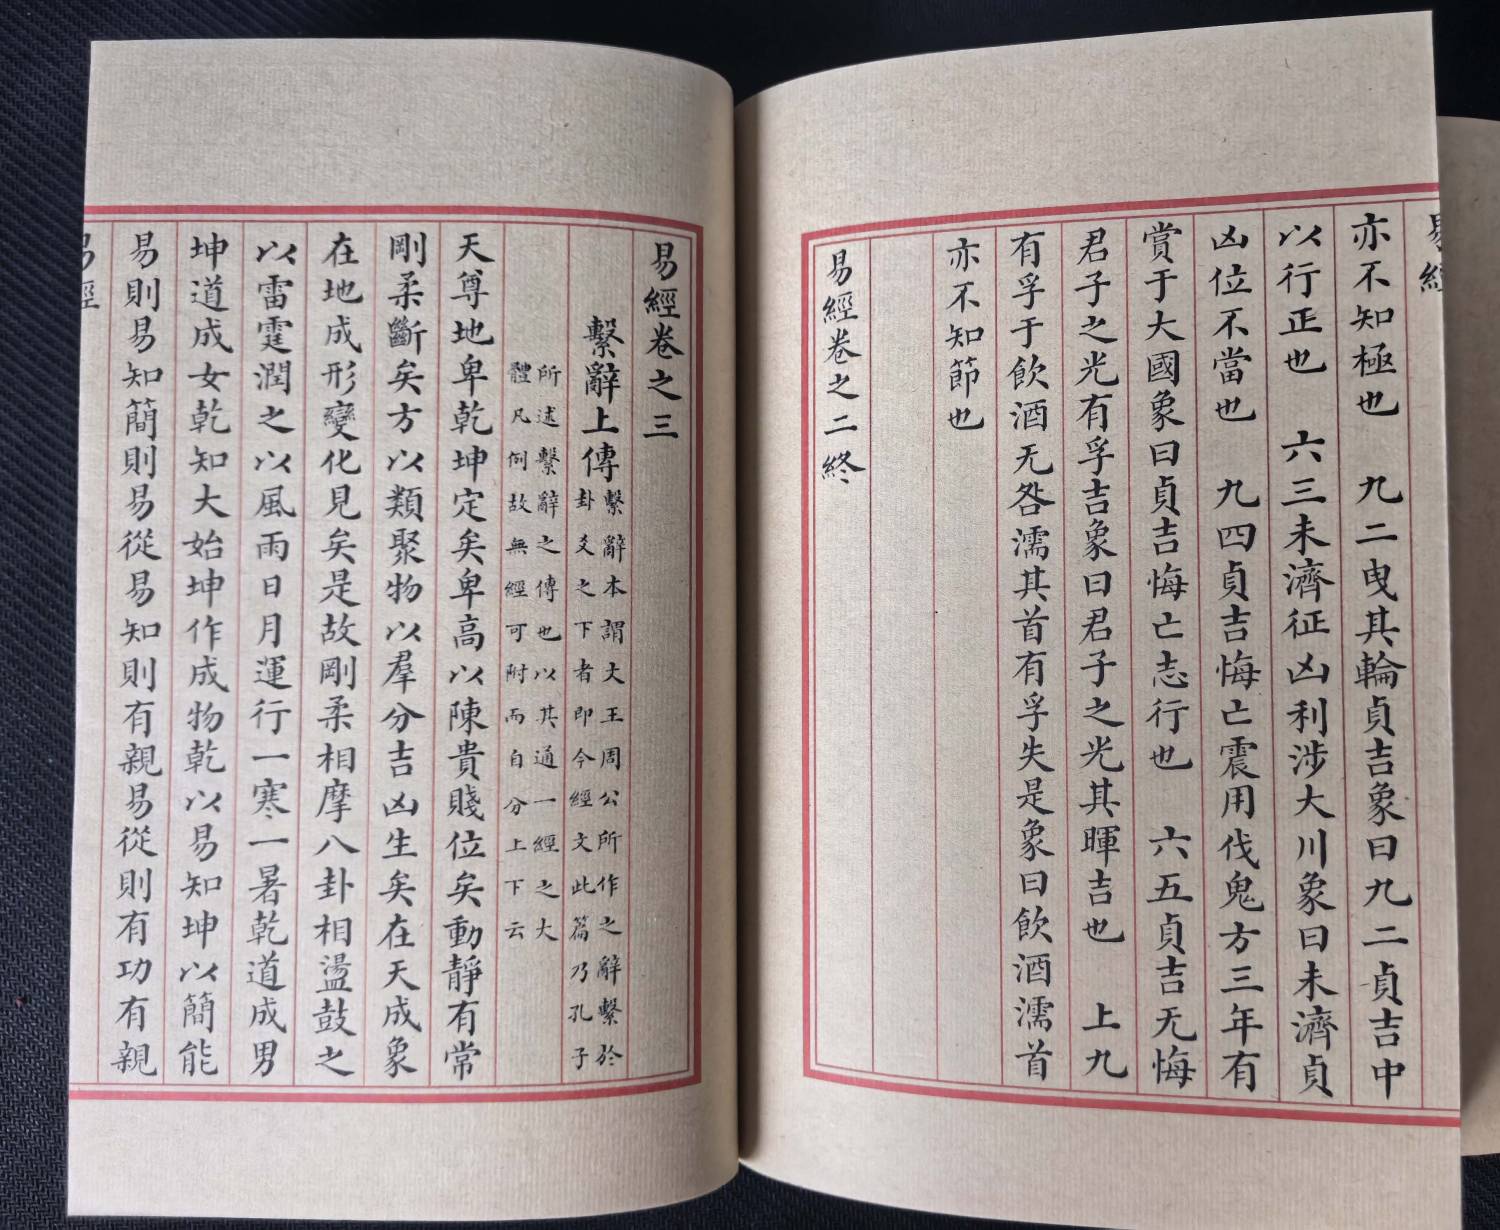 易經
亦不知極也　九二曳其輪貞吉象曰九二貞吉中
以行正也　六三未濟征凶利涉大川象曰未濟貞
凶位不當也　九四貞吉悔亡震用伐鬼方三年有
賞于大國象曰貞吉悔亡志行也　六五貞吉无悔
君子之光有孚吉象曰君子之光其暉吉也　上九
有孚于飲酒无咎濡其首有孚失是象曰飲酒濡首
亦不知節也
易經卷之二終
易經卷之三
繫辭上傳
繫辭本謂文王周公所作之辭繫於
卦爻之下者即今經文此篇乃孔子
所述繫辭之傳也以其通一經之大
體凡例故無經可附而自分上下云
天尊地卑乾坤定矣卑高以陳貴賤位矣動靜有常
剛柔斷矣方以類聚物以羣分吉凶生矣在天成象
在地成形變化見矣是故剛柔相摩八卦相盪鼓之
以雷霆潤之以風雨日月運行一寒一暑乾道成男
坤道成女乾知大始坤作成物乾以易知坤以簡能
易則易知簡則易從易知則有親易從則有功有親
易經